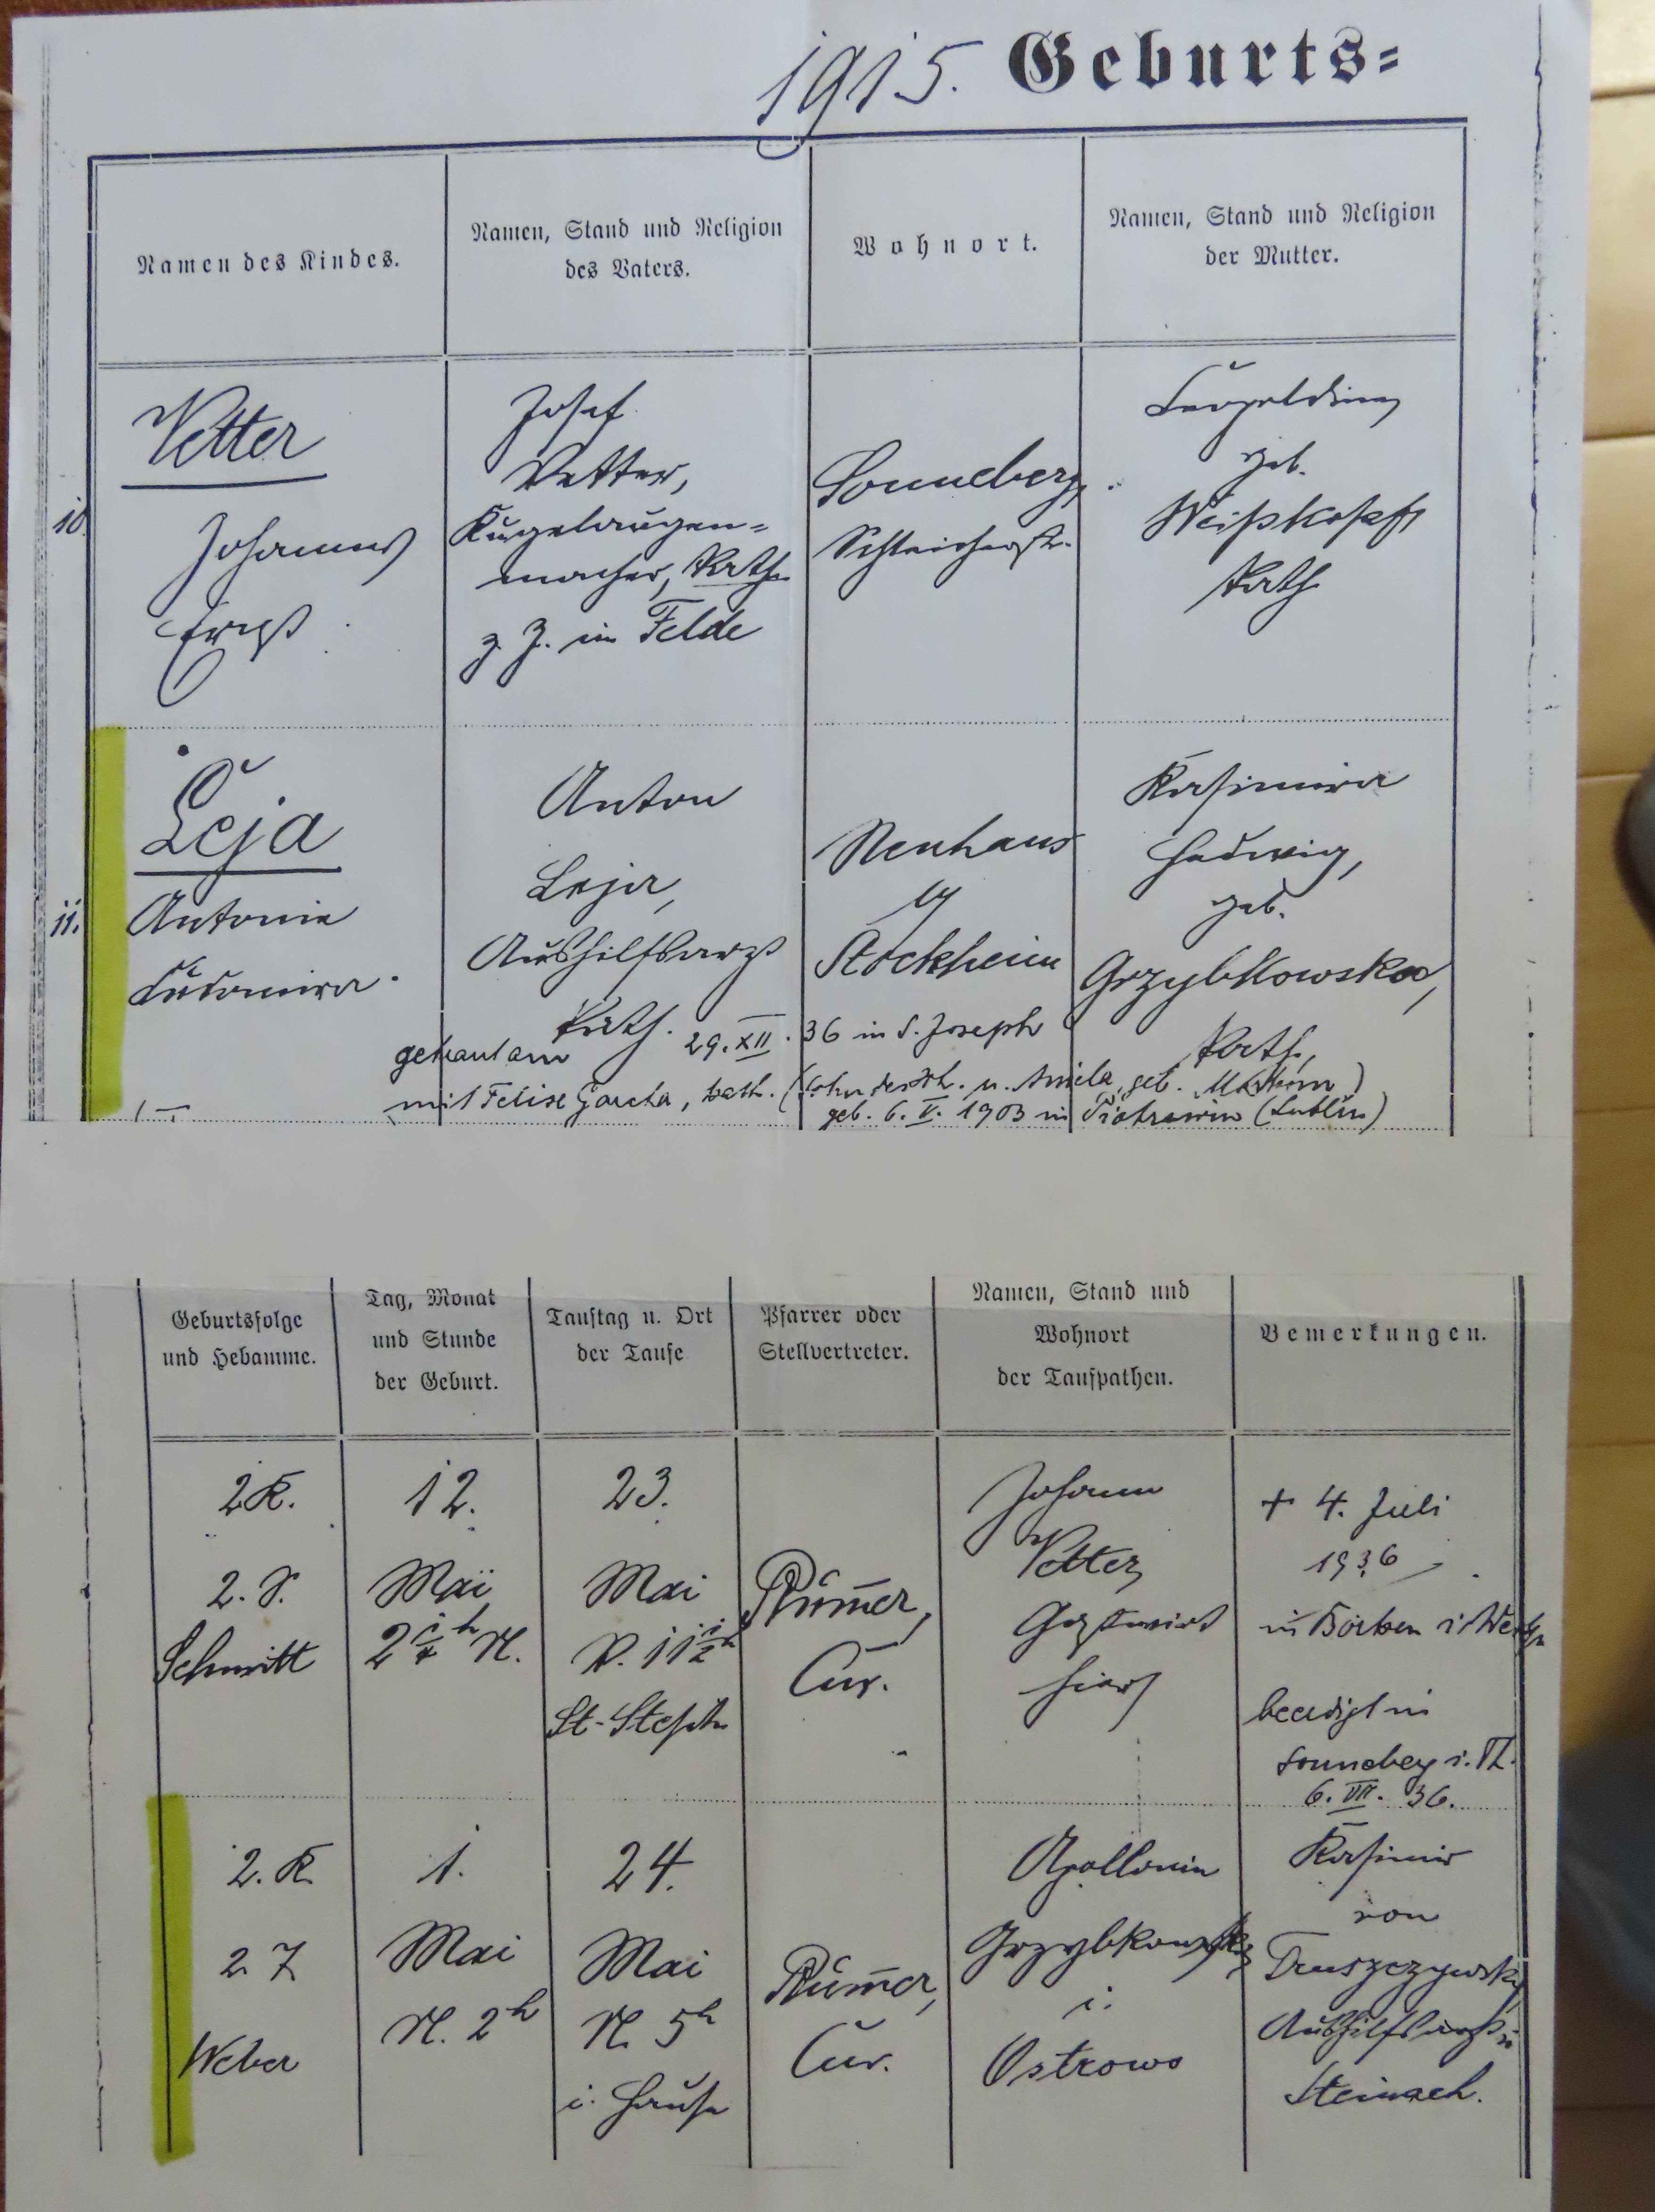 1915. Geburts=
Namen des Kindes.
Namen, Stand und Religion
des Vaters.
Wohnort.
Namen, Stand und Religion
der Mutter.
10
Vetter
Johannes
Ernst
Josef
Vetter,
Kugelaugen=
macher, Kath.
z. Z. im Felde
Sonneberg,
Schleicherstr.
Leopoldine
geb.
Weißkopf
Kath
11.
Leja
Antonie
Ludomira
Anton
Leja,
Aushilfsarzt
Kath.
Neuhaus
Stockheim
Kasimira
Hedwig,
geb.
Grzybkowska,
Kath.,
getraut am 29. XII. 36 in S. Joseph
mit Felix kath. (Sohn des u. Aniela, geb.
geb. 6. V. 1903 in Piotrawin (Lublin)
Geburtsfolge
und Hebamme.
Tag, Monat
und Stunde
der Geburt.
Tauftag u. Ort
der Taufe
Pfarrer oder
Stellvertreter.
Namen, Stand und
Wohnort
der Taufpathen.
Bemerkungen.
2 K.
2. S.
Schmitt
12.
Mai
N.
23.
Mai
V. 11½ h
St. Steph
Cur.
Johann
Vetter,
Gastwirt
hier
+ 4. Juli
1936
in Borken i. Westf
beerdigt in
Sonneberg i. Th.
6. VII. 36.
2. K
2 T
Weber
1.
Mai
N. 2h
24.
Mai
N. 5h
i. Hause
Cur.
Apollonia
Grzybkowska
i.
Ostrowo
Kasimir
von
Truszczynski,
Aushilfsarzt in
Steinach.